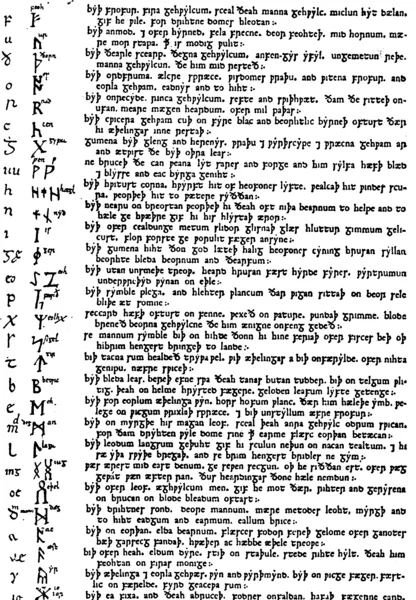 f ᚠ feoh byþ frofur. fira gehƿylcum. sceal ðeah manna gehƿylc. miclun hyt dælan.
gif he ƿile. for drihtne domes hleotan:.
u ᚢ ur byþ anmod. ⁊ ofer hyrned. fela frecne. deor feohteþ. mid hornum. mæ-
re mor stapa. þ is modig ƿuht:.
ð ᚦ byþ ðearle scearp. ðegna gehƿylcum. anfen-gys yfyl. ungemetun reþe.
manna gehƿylcun. ðe him mid resteð:.
o ᚩ byþ ordfruma. ælcre spræce. ƿisdomes ƿraþu. and ƿitena frofur. and
eorla gehƿam. eadnys and to hiht:.
r ᚱ byþ onrecyde. rinca gehƿylcum. sefte and sƿiþhƿæt. ðam ðe sitteþ on-
ufan. meare mægen heardum. ofer mil paþas:.
c ᚳ cen byþ cƿicera gehƿam cuþ on fyre blac and beorhtlic byrneþ oftust ðær
hi æþelingas inne restaþ:.
g ᚷ gyfu gumena byþ gleng and herenys. ƿraþu ⁊ ƿyrþscype ⁊ ƿræcna gehƿam ar
and ætƿist ðe byþ oþra leas:.
uu ᚹ ne bruceþ ðe can ƿeana lyt sares and sorge and him sylfa hæfþ blæd
⁊ blysse and eac byrga geniht:.
h ᚻ hægl byþ hƿitust corna. hƿyrft hit of heofones lyfte. ƿealcaþ hit ƿindes scu-
ra. ƿeorþeþ hit to ƿætere syððan:.
n ᚾ nyd byþ nearu on breostan ƿeorþeþ hi ðeah oft niþa bearnum to helpe and to
hæle ge hƿæþre gif hi his hlystaþ æror:.
i ᛁ is byþ ofer cealdunge metum slidor glisnaþ glæs hluttur gimmum geli-
cust. flor forste ge ƿoruht fæger ansyne:.
ᛄ ger byþ gumena hiht ðon god læteþ halig heofones cyning hrusan syllan
beorhte bleda beornum and ðearfum:.
eo ᛇ eoh byþ utan unsmeþe treoƿ. heard hrusan fæst hyrde fyres. ƿyrtrumun
underƿreþyd ƿynan on eþle:.
p ᛈ byþ symble plega. and hlehter ƿlancum ðar ƿigan sittaþ on beor sele
bliþe æt somne:.
x ᛉ seccard hæfþ oftust on fenne. ƿexeð on ƿature. ƿundaþ grimme. blode
breneð beorna gehƿylcne ðe him ænigne onfeng gedeð:.
ᛋ se mannum symble biþ on hihte ðonn hi hine feriaþ ofer fisces beþ oþ
hibrim hengest bringeþ to lande:.
t ᛏ biþ tacna sum healdeð tryƿa ƿel. ƿiþ æþelingas a biþ onfærylde. ofer nihta
genipu. næfre sƿiceþ:.
b ᛒ beorc byþ bleda leas. bereþ efne sƿa ðeah tanas butan tudder. biþ on telgum ƿli-
tig. þeah on helme hrysted fægere. geloden leafum lyfte getenge:.
e ᛖ eh byþ for eorlum æþelinga ƿyn. hors hofum ƿlanc. ðær him hæleþe ymb. ƿe-
lege on ƿicgum ƿrixlaþ spræce. ⁊ biþ unstyllum æfre frofur:.
m ᛗ byþ on myrgþe his magan leof. sceal þeah anra gehƿylc oðrum sƿican.
for ðam dryhten ƿyle dome sine þ earme flæsc eorþan betæcan:.
l ᛚ byþ leodum langsum geþuht gif hi sculun neþun on nacan tealtum. ⁊ hi
sæ yþa sƿyþe bregaþ. and se brim hengest bridles ne gym:.
ᛝ ing ƿæs ærest mid east denum. ge seƿen secgun. oþ he siððan est. ofer ƿæg
geƿat ƿæn æfter ran. ðus heardingas ðone hæle nemdun:.
oe ᛟ eþel byþ ofer leof. æghƿylcum men. gif he mot ðær. rihter and gerysena
on brucan on blode bleadum oftast:.
d ᛞ byþ drihtnes sond. deore mannum. mære metodes leoht. myrgþ and
to hiht eadgum and earmum. eallum brice:.
a ᚪ ac byþ on eorþan. elda bearnum. flæsces fodor fereþ gelome ofer ganotes
bæþ garsecg fandaþ. hƿæþer ac hæbbe æþele treoƿe:.
æ ᚫ æsc biþ ofer heah. eldum dyre. stiþ on staþule. stede rihte hylt. ðeah him
feohtan on firas monige:.
y ᚣ yr byþ æþelinga ⁊ eorla gehƿæs. ƿyn and ƿyrþmynd. byþ on ƿicge fæger. fæst-
lic on færelde. fyrd geacepa sum:.
byþ ea fixa. and ðeah abruceþ. fodres onfaldan. hafaþ fægerne eard.